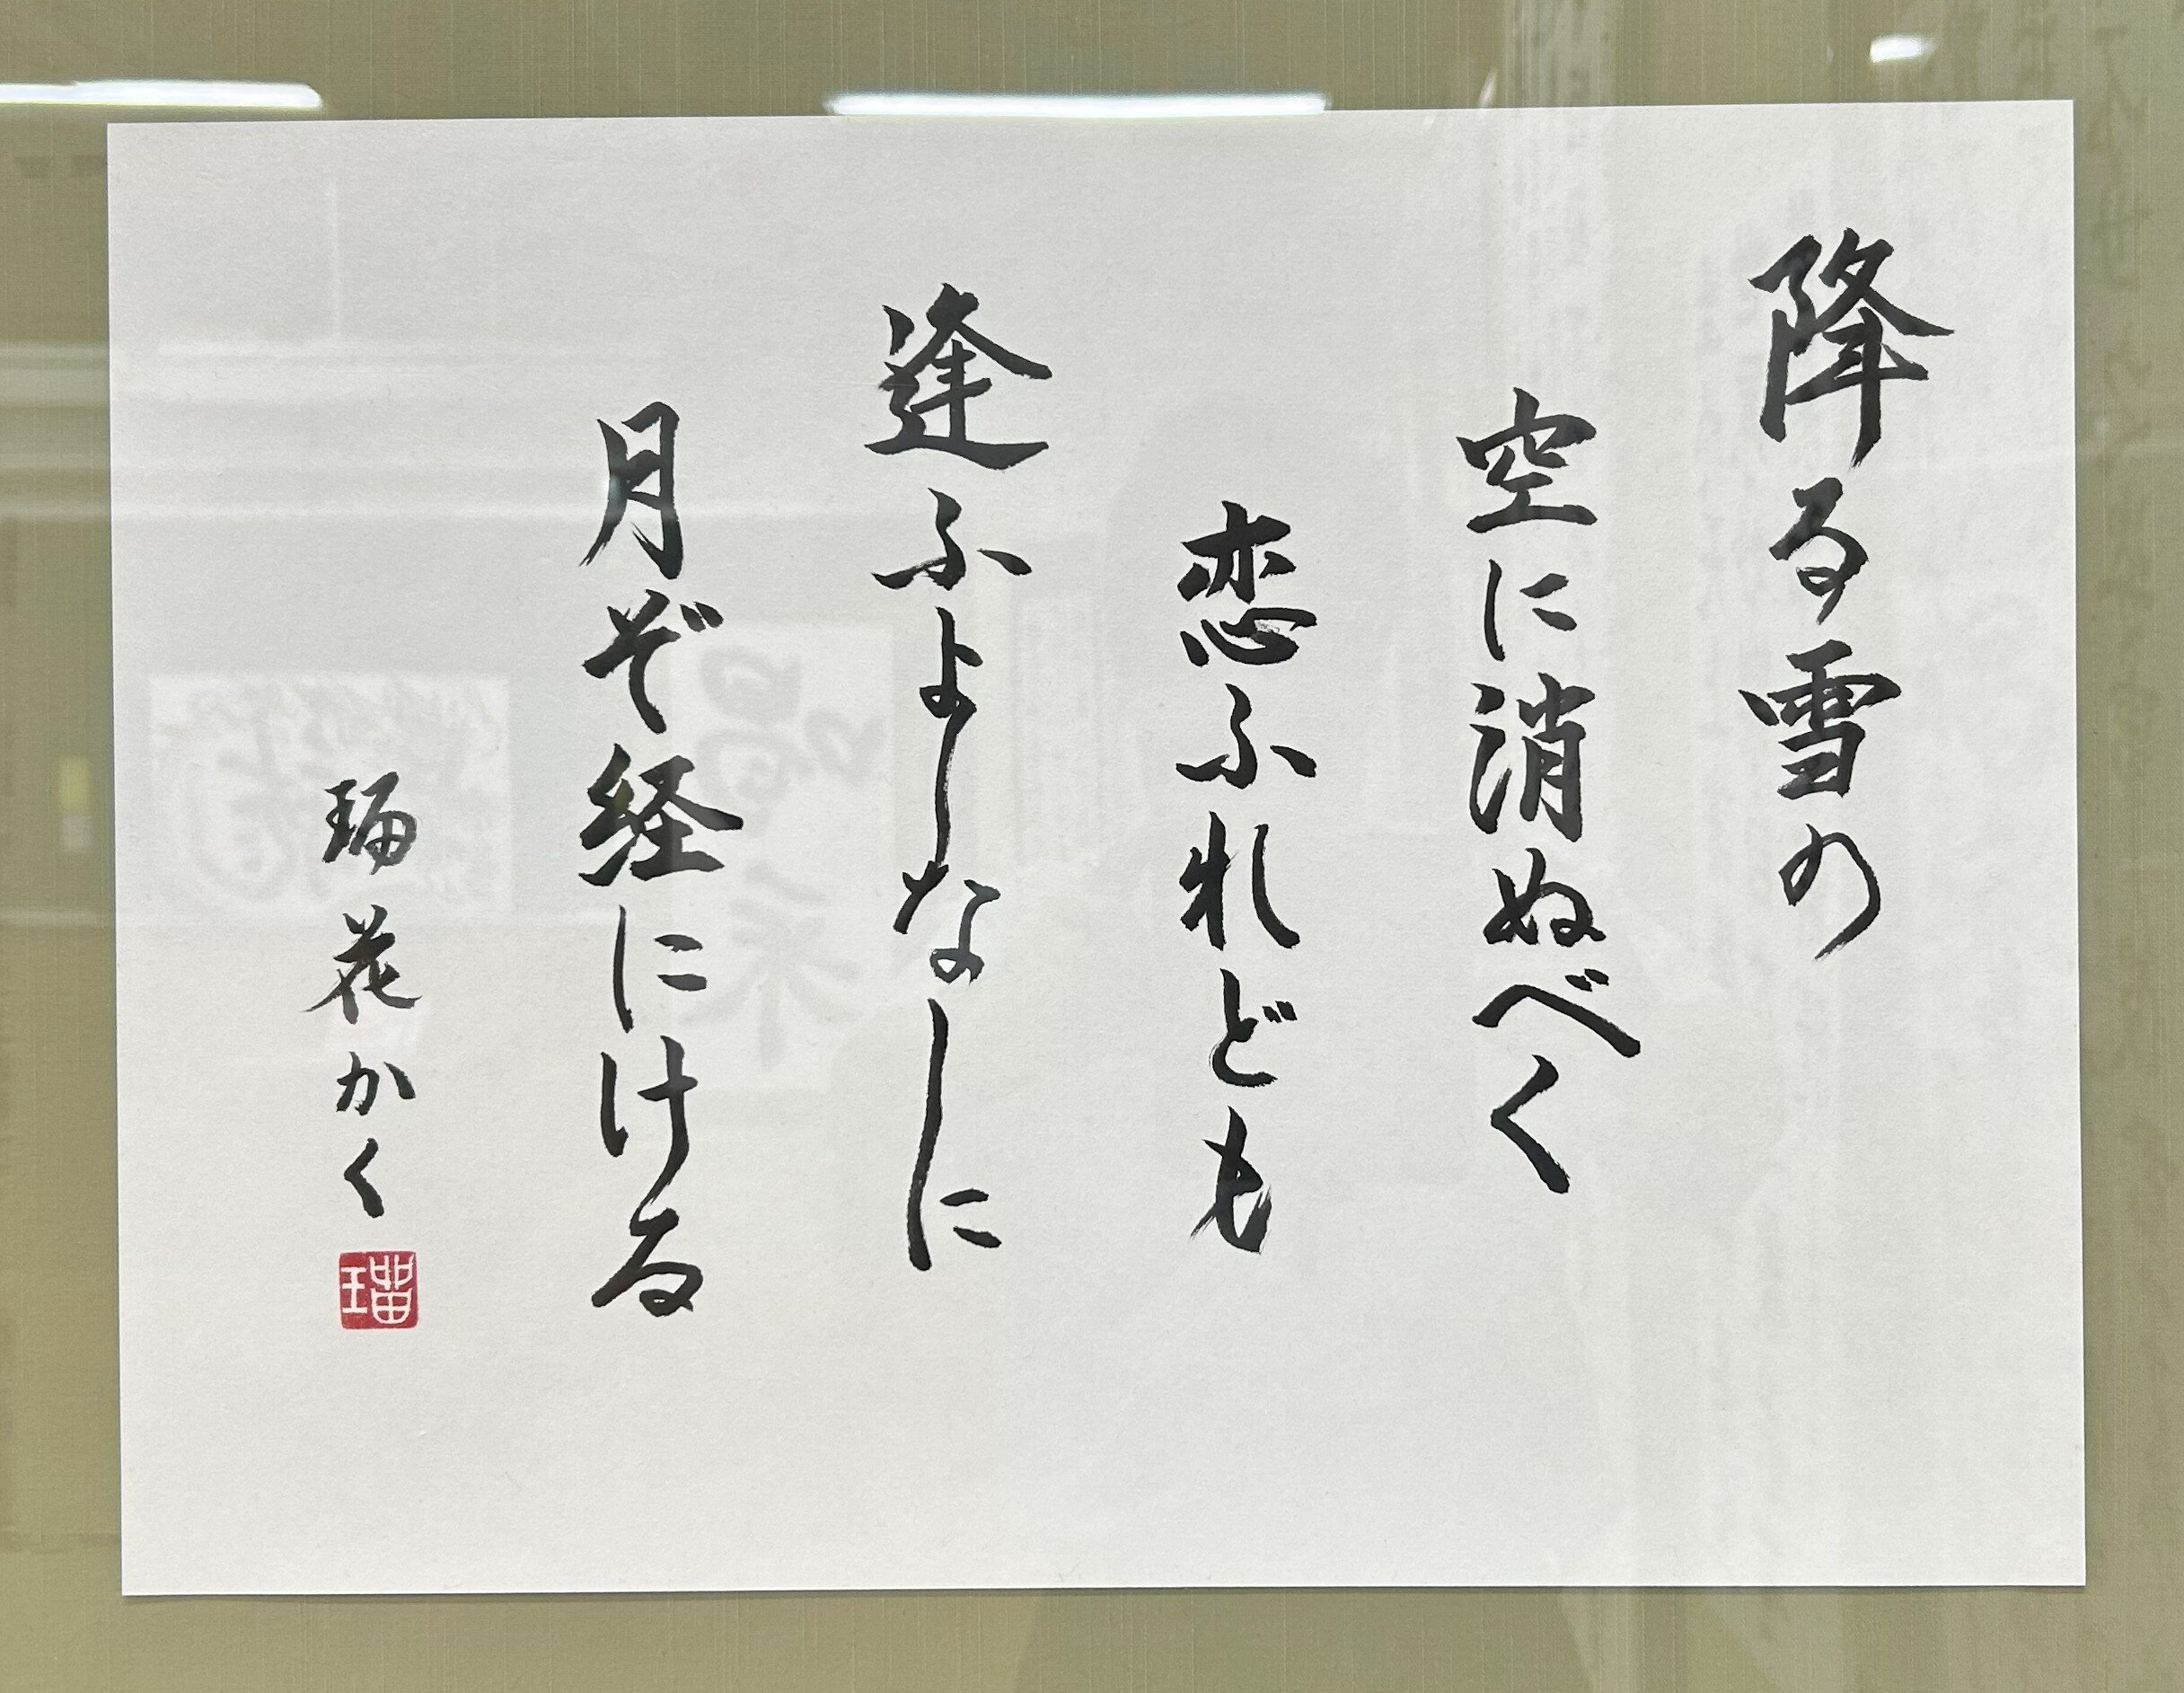 降る雪の
空に消ぬべく
恋ふれども
逢ふよしなしに
月ぞ経にける
瑠花かく